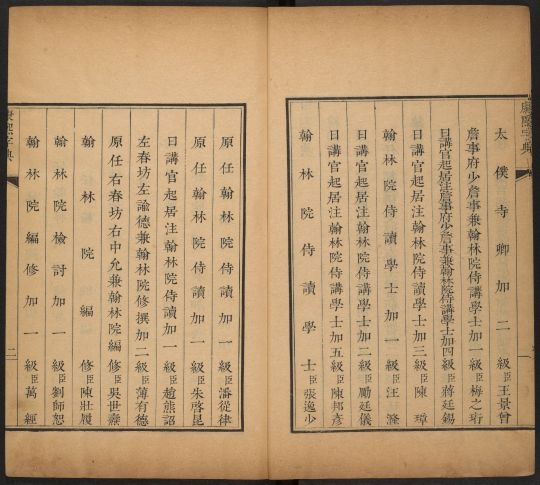 太僕寺卿加二級臣王景曾
詹事府少詹事兼翰林院侍講學士加二級臣梅之珩
日講官起居注詹事府少詹事兼翰林院侍講學士加四級臣蔣廷錫
日講官起居注翰林院侍讀學士加三級臣陳璋
翰林院侍讀學士加一級臣汪漋
日講官起居注翰林院侍講學士加二級臣勵廷儀
日講官起居注翰林院侍講學士加五級臣陳邦彥
翰林院侍讀學士臣張逸少
原任翰林院侍讀加一級臣潘從律
原任翰林院侍讀加一級臣朱啓昆
日講官起居注翰林院侍讀加一級臣趙熊詔
左春坊左諭德兼翰林院修撰加二級臣薄有德
原任右春坊右中允兼翰林院編修臣吳世燾
翰林院編修臣陳壯履
翰林院檢討加一級臣劉師恕
翰林院編修加一級臣萬經
康熙字典
康熙字典
二